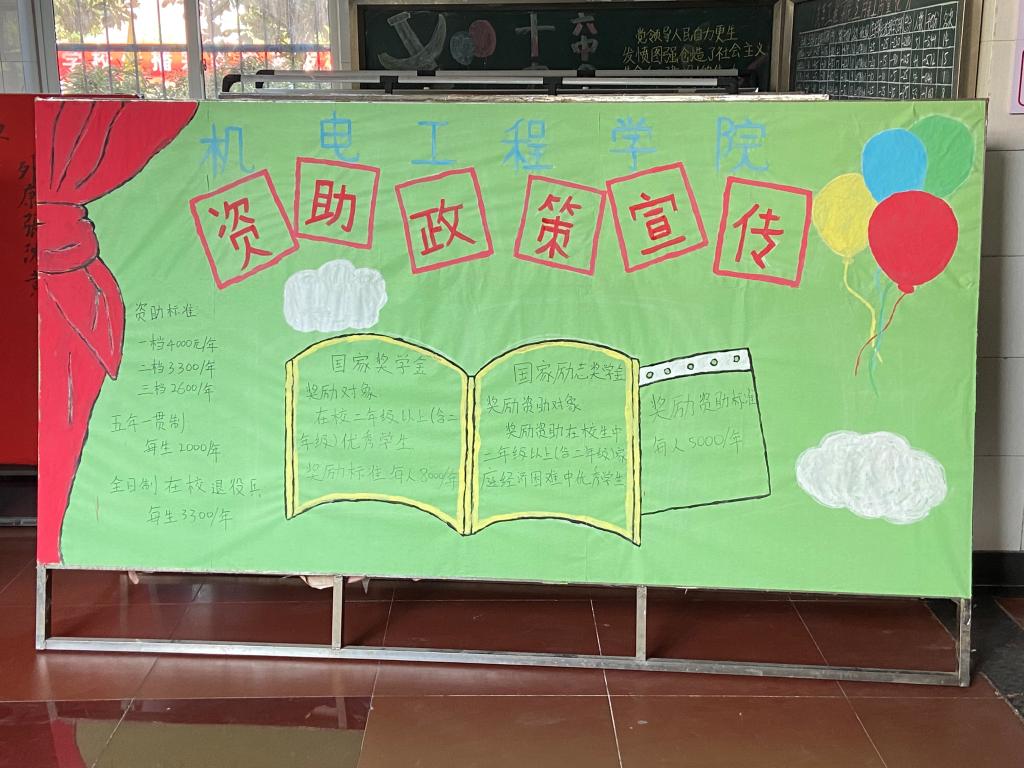 机电工程学院
资助政策宣传
资助标准
一档4000元/年
二档3300/年
三档2600/年
五年一贯制
每生2000年
全日制在校退役兵
每生3300/年
国家奖学金
奖励对象
在校二年级以上(含二
年级)优秀学生
奖励标准每人8000/年
国家励志奖学金
奖励资助对象
奖励资助在校生中
二年级以上(含二年级)家
庭经济困难中优秀学生
奖励资助标准
每人5000/年
十六
中
党领导人民自力更生
发愤图强创造了社会主义